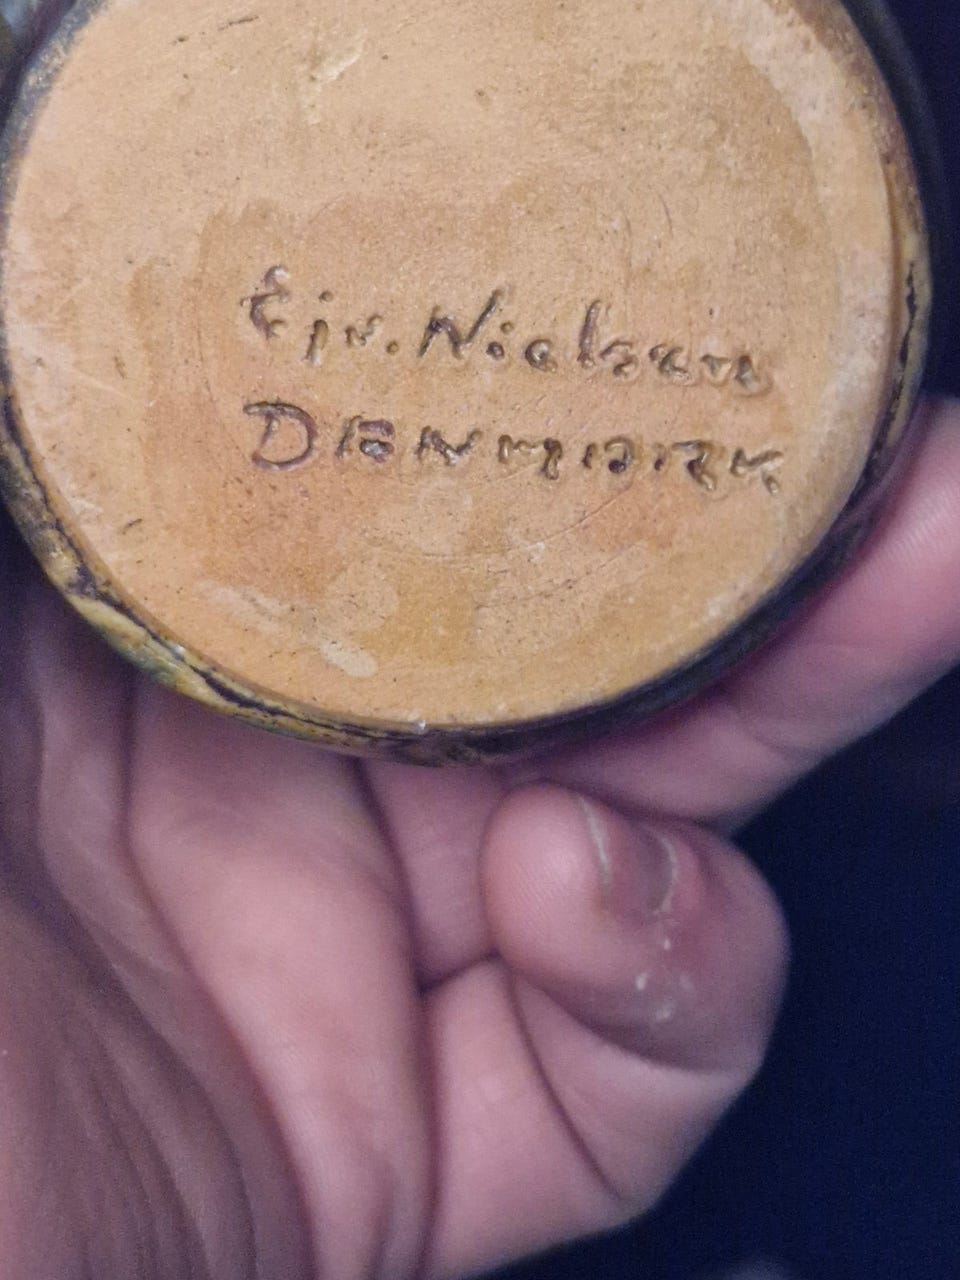 Ejv. Nielsen
DENMARK